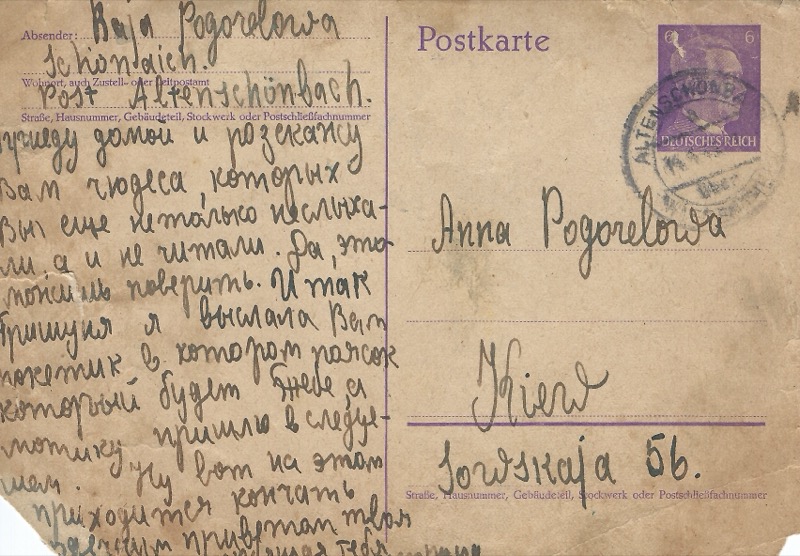 Absender: Raja Pogorelowa
Schönaich.
Wohnort, auch Zustell- oder Leitpostamt
Post Altenschönbach.
Straße, Hausnummer, Gebäudeteil, Stockwerk oder Postschließfachnummer
домой и розскажу
Вам чюдеса, которых
Вы еще нетолько неслыха-
ли а и не читали. Да, это
можишь поверить. И так
я выслала Вам
покетик в котором поясок
который будет тебе, а
мотику пришлю в следую-
щем. Ну вот на этом
приходится кончать
приветам твоя
тебя
Postkarte
6 6
DEUTSCHES REICH
ALTENSCHÖNBACH
über
Anna Pogorelowa
Kiew
Sowskaja 56.
Straße, Hausnummer, Gebäudeteil, Stockwerk oder Postschließfachnummer